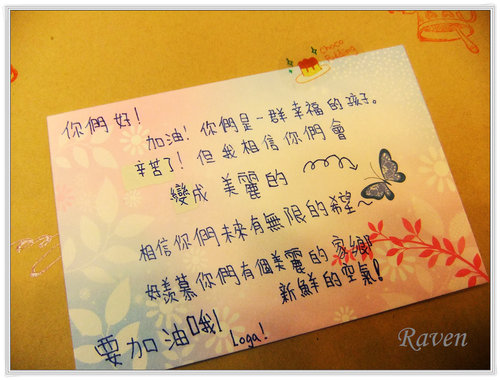 Choco
Pudding
你們好!
加油!你們是一群幸福的孩子。
辛苦了!但我相信你們會
變成 美麗的
相信你們未來有無限的希望~
好羨慕你們有個美麗的家鄉
新鮮的空氣!
要加油哦!
Loga!
Raven